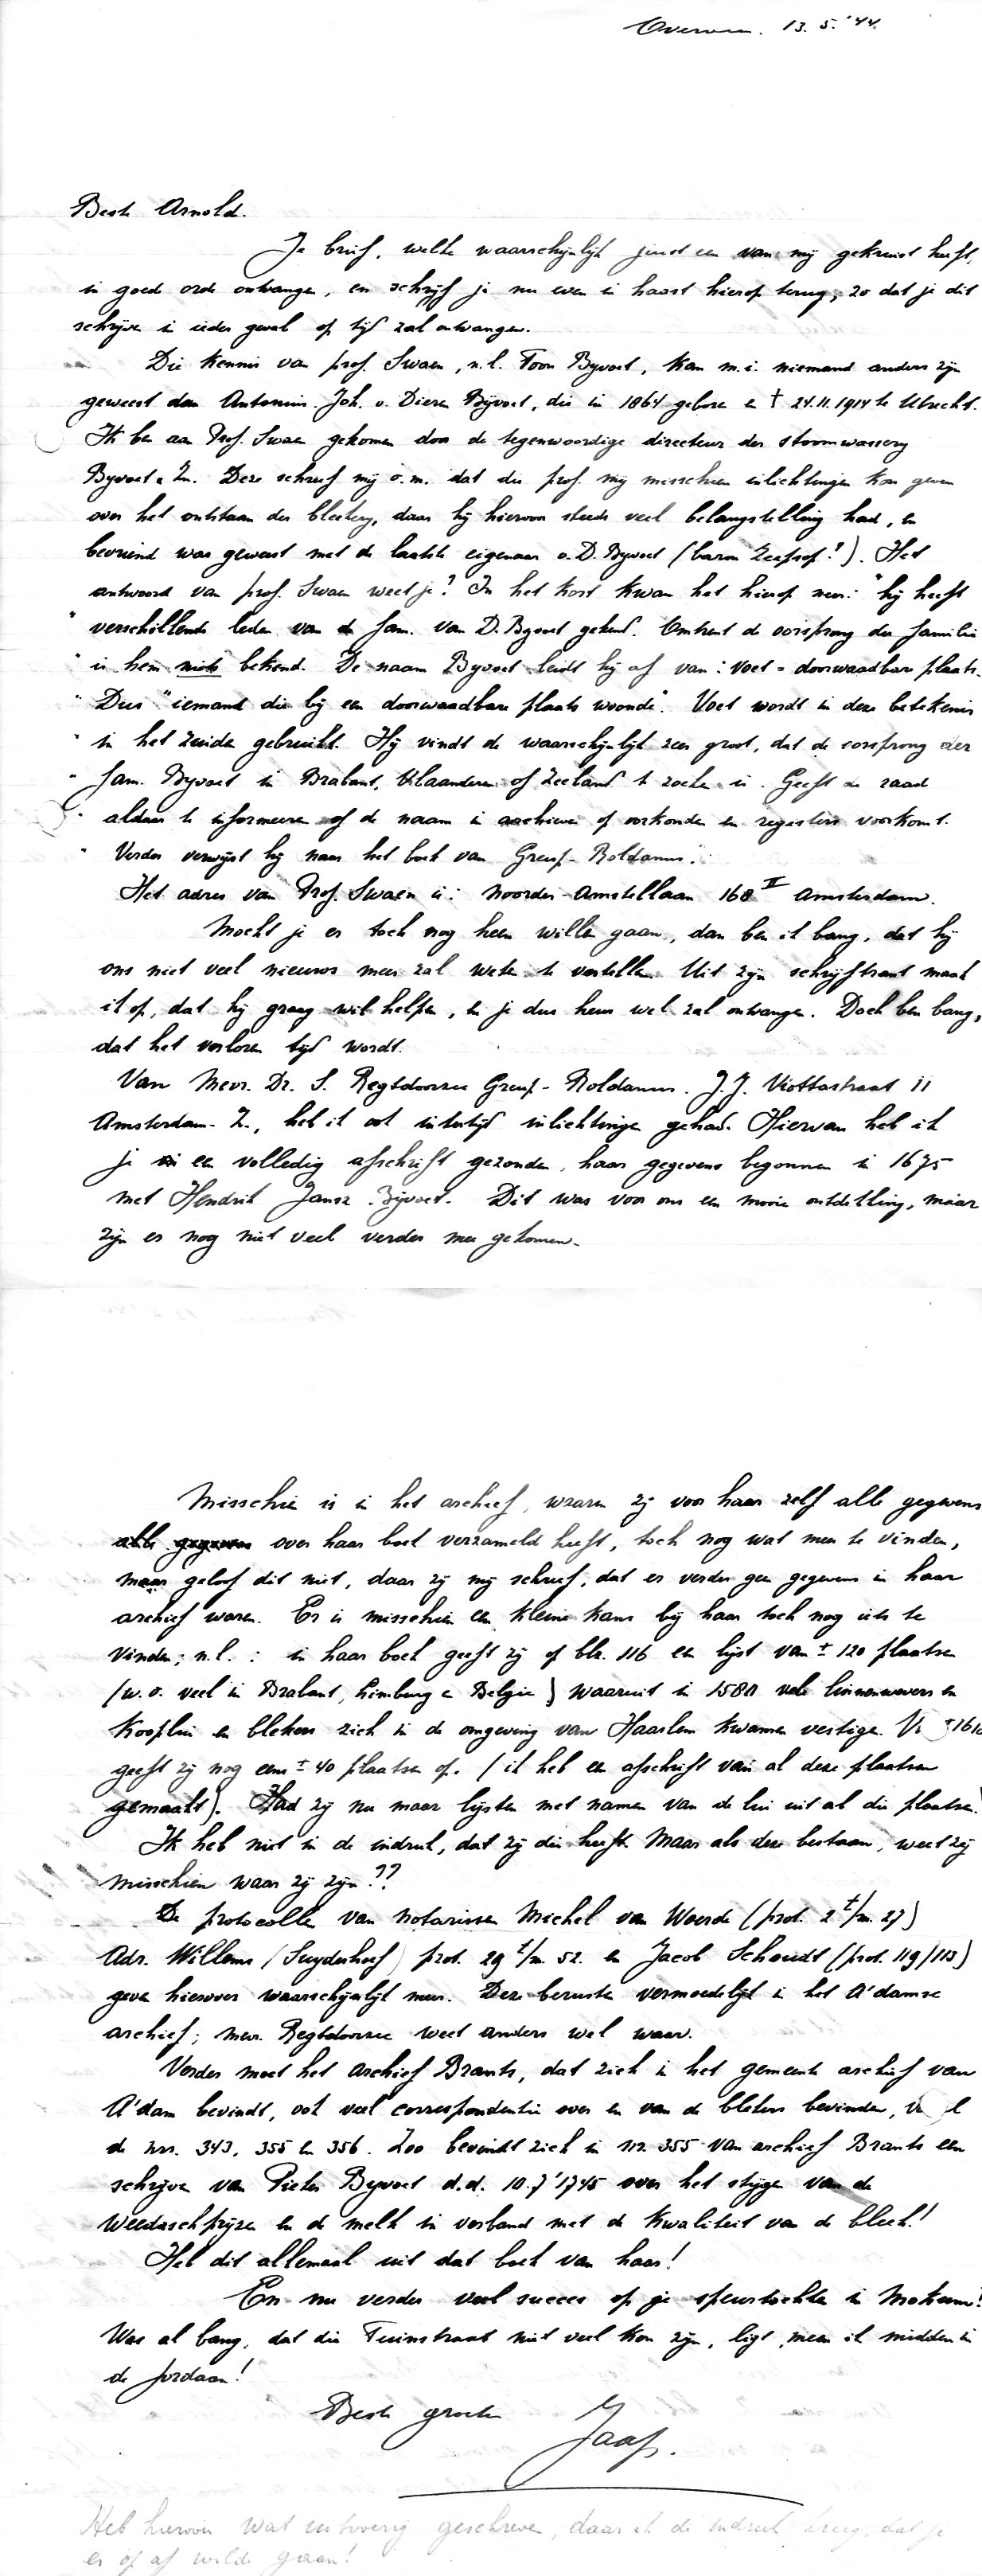 Overveen. 13.5.'44.
Beste Arnold.
Je brief, welke waarschijnlijk juist een van mij gekruist heeft,
in goed orde ontvangen, en schrijf je nu even in haast hierop terug, zo dat je dit
schrijven in ieder geval op tijd zal ontvangen.
Die kennis van prof. Swaen, n.l. Toon Byvoet, kan m.i. niemand anders zijn
geweest dan Antonius Joh. v. Dieren Bijvoet, die in 1864 geboren en † 24.11.1914 te Utrecht.
Ik ben aan Prof. Swaen gekomen door de tegenwoordige directeur der stoomwassery
Byvoet & Zn. Deze schreef mij o.m. dat die prof. mij misschien inlichtingen kon geven
over het ontstaan der bleekery, daar hij hiervoor steeds veel belangstelling had, en
bevriend was geweest met de laatste eigenaar v.D. Byvoet (baron Zeepsop!?). Het
antwoord van prof. Swaen weet je? In het kort kwam het hierop neer: "hij heeft
" verschillende leden van de fam. van D. Byvoet gekend. Omtrent de oorsprong der familie
" is hem niets bekend. De naam Byvoet leidt hij af van: voet = doorwaadbare plaats.
" Dus "iemand die bij een doorwaadbare plaats woonde". Voet wordt in deze betekenis
" in het Zuiden gebruikt. Hij vindt de waarschijnlijk zeer groot, dat de oorsprong der
" fam. Byvoet in Brabant, Vlaanderen of Zeeland te zoeken is. Geeft de raad
" aldaar te informeeren of de naam in archieven of oorkonden en registers voorkomt.
" Verder verwijst hij naar het boek van Greup-Roldanus".
Het adres van Prof. Swaen is: Noorder-Amstellaan 168 II Amsterdam.
Mocht je er toch nog heen willen gaan, dan ben ik bang, dat hij
ons niet veel nieuws meer zal weten te vertellen. Uit zijn schrijftrant maak
ik op, dat hij graag wil helpen, en je dus heus wel zal ontvangen. Doch ben bang,
dat het verloren tijd wordt.
Van Mevr. Dr. S. Regtdoorzee Greup-Roldanus. J.J. Viottastraat 11
Amsterdam-Z., heb ik ook indertijd inlichtingen gehad. Hiervan heb ik
je een volledig afschrift gezonden, haar gegevens begonnen in 1675
met Hendrik Jansz Bijvoet. Dit was voor ons een mooie ontdekking, maar
zijn er nog niet veel verder mee gekomen.
Misschien is in het archief, waarin zij voor haar zelf alle gegevens
alle gegevens over haar boek verzameld heeft, toch nog wat meer te vinden,
maar geloof dit niet, daar zij mij schreef, dat er verder geen gegevens in haar
archief waren. Er is misschien een kleine kans bij haar toch nog iets te
vinden; n.l.: in haar boek geeft zij op blz. 116 een lijst van ± 120 plaatsen
(w.o. veel in Brabant, Limburg en Belgie) waaruit in 1580 vele linnenwevers en
kooplui en blekers zich in de omgeving van Haarlem kwamen vestigen. ±
geeft zij nog eens ± 40 plaatsen op. (ik heb een afschrift van al deze plaatsen
gemaakt). Had zij nu maar lijsten met namen van de lui uit al die plaatsen.
Ik heb niet in de indruk, dat zij die heeft. Maar als deze bestaan, weet zij
misschien waar zij zijn??
De protocollen van notarissen Michel van Woerde (prot. 2 t/m. 27)
Adr. Willems (Suyderhoef) prot. 29 t/m 52. en Jacob Schoudt (prot. 119/113)
geven hierover waarschijnlijk meer. Deze berusten vermoedelijk in het A'damse
archief; mevr. Regtdoorzee weet anders wel waar.
Verder moet het archief Brants, dat zich in het gemeente archief van
A'dam bevindt, ook veel correspondentie over en van de blekers bevinden,
de nrs. 343, 355 en 356. Zoo bevindt zich in nr. 355 van archief Brants een
schrijven van Pieter Byvoet d.d. 10.7'1745 over het stijgen van de
Weedaschprijzen en de melk in verband met de kwaliteit van de bleek!
Heb dit allemaal uit dat boek van haar!
En nu verder veel succes op je speurtochten in Mokum!
Was al bang, dat die Tuinstraat niet veel kon zijn, ligt, meen ik midden in
de Jordaan!
Beste groeten
Jaap.
Heb hierover wat uitvoerig geschreven, daar ik de indruk kreeg, dat je
er op af wilde gaan!